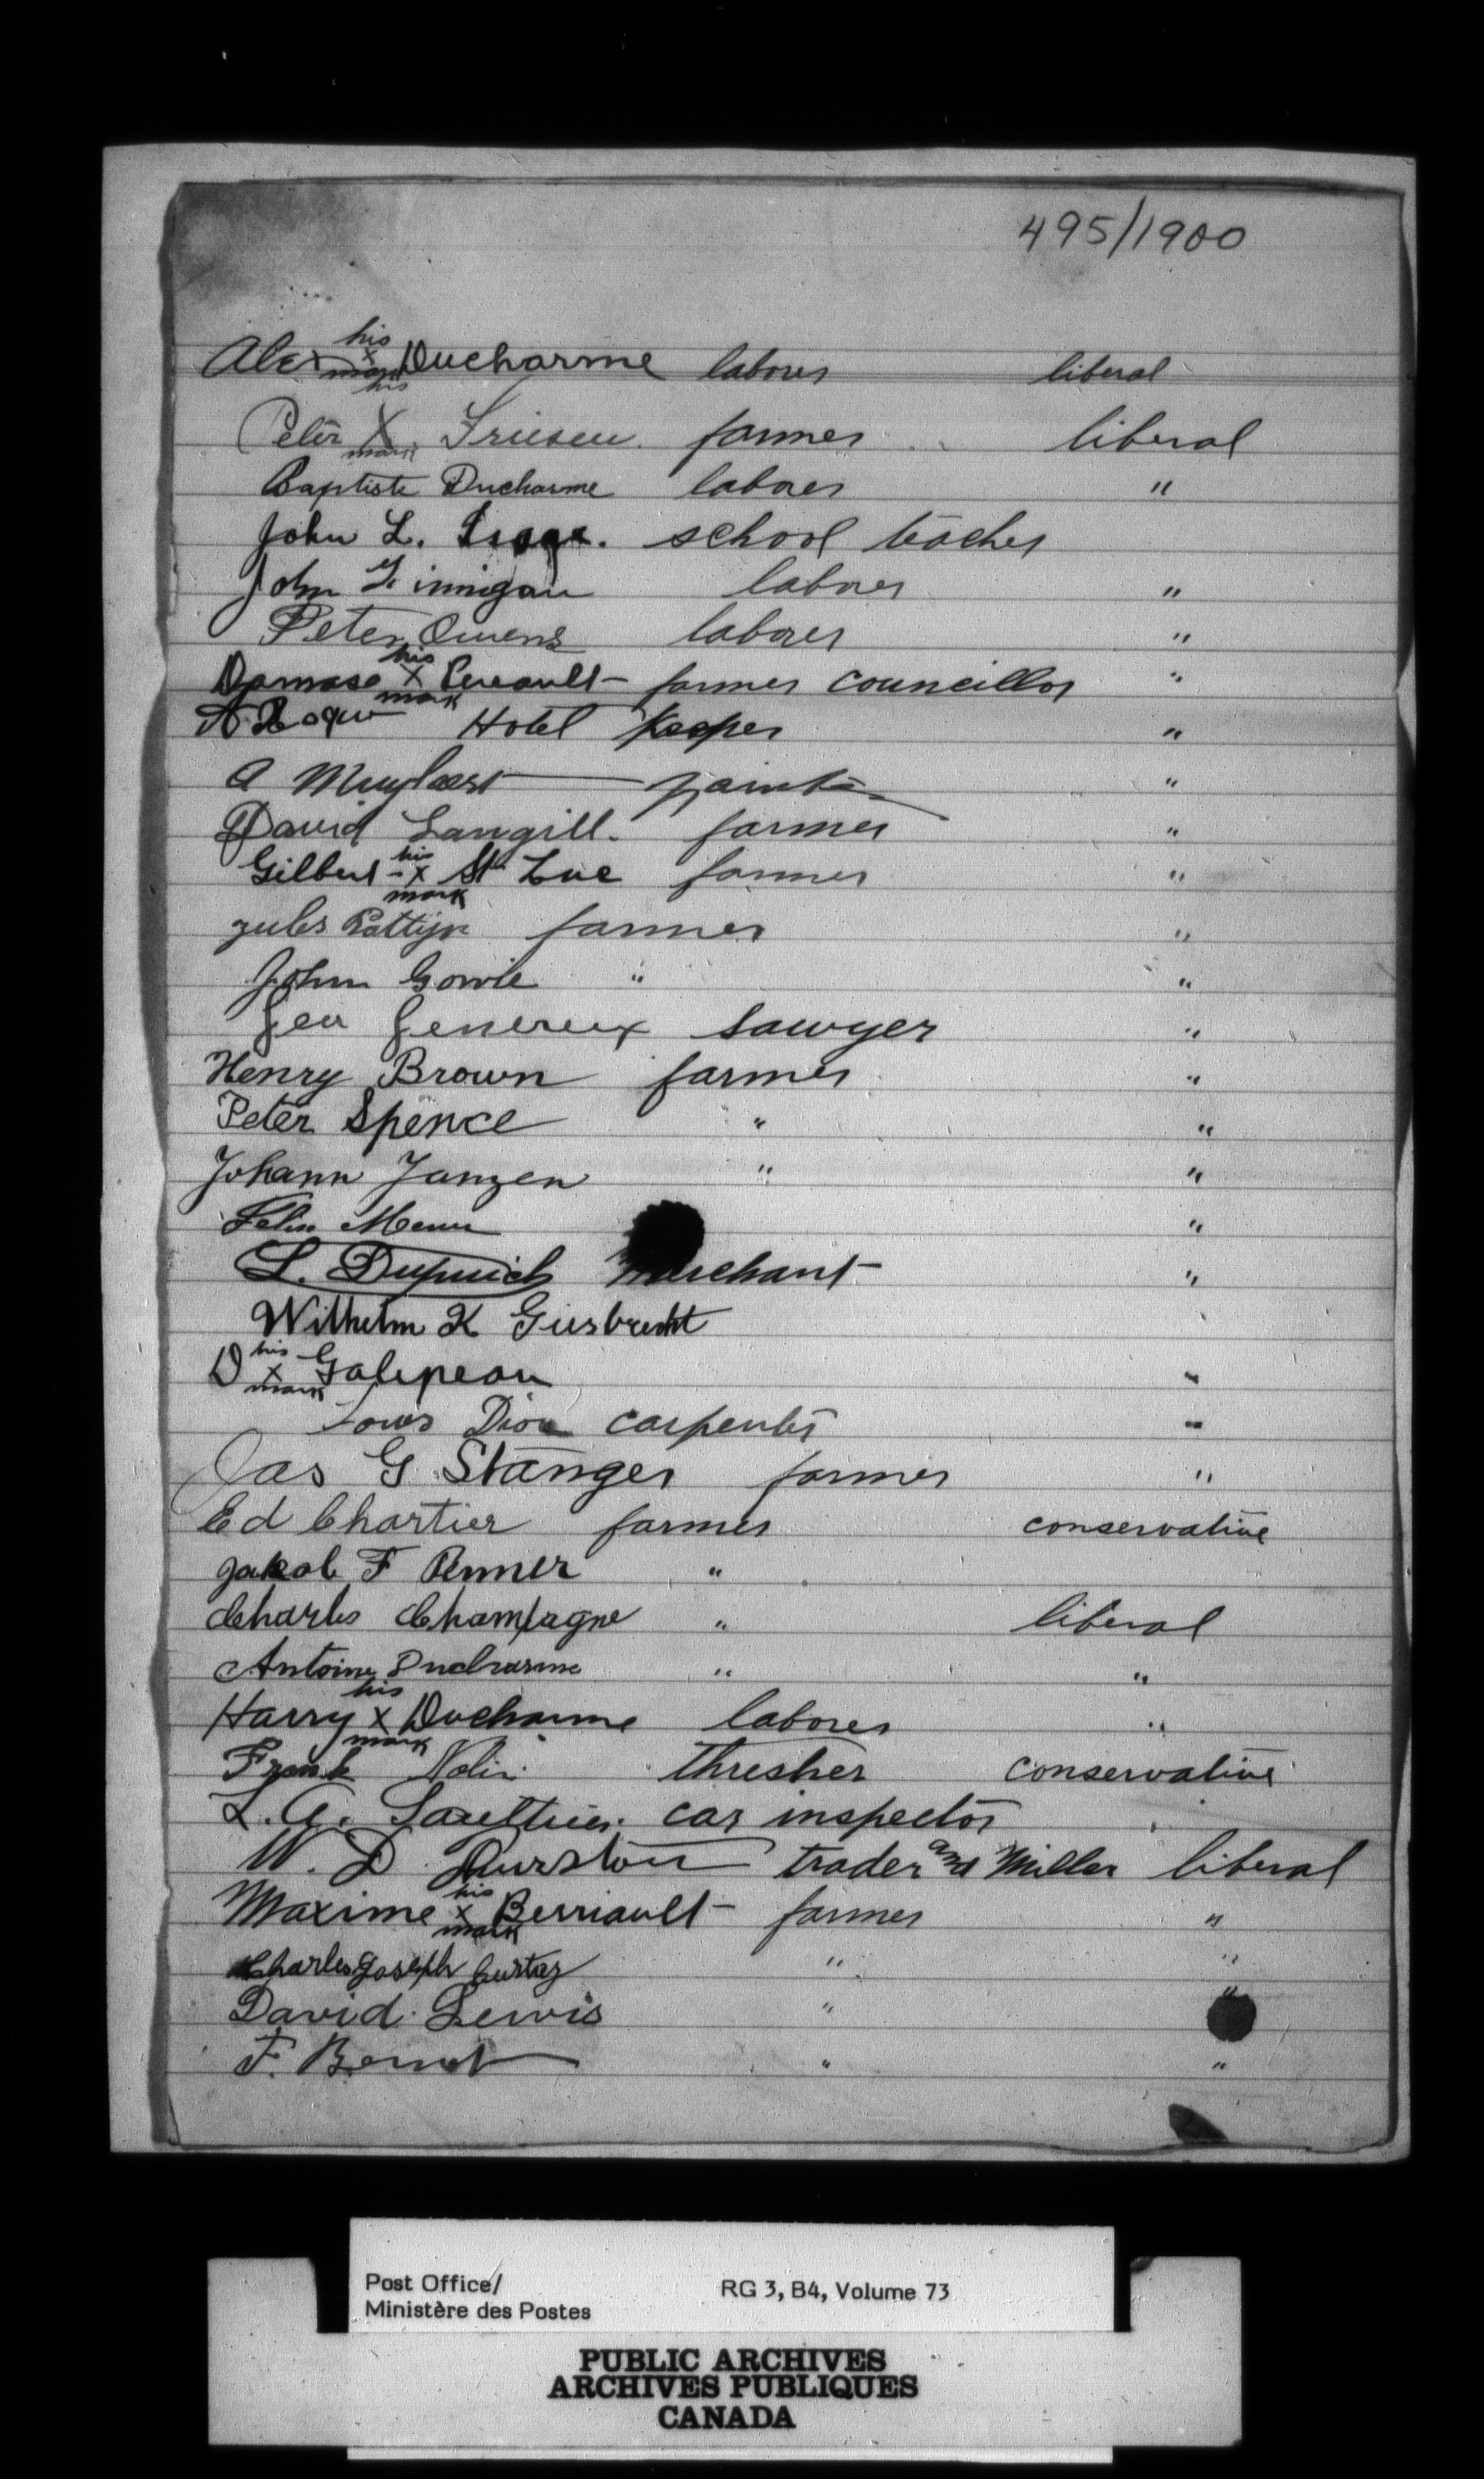 495/1900
his
Alex x Ducharme laborer liberal
mark
his
Peter X Friesen. farmer liberal
mark
Baptiste Ducharme laborer "
John L. school teacher
John Finnigan laborer "
Peter Owens laborer "
his
Damase X Pereault farmer councillor "
mark
Hotel Keeper "
A painter "
David Langill. farmer "
his
Gilbert X St Luc farmer "
mark
Jules Pattyn farmer "
John Gowie " "
Geo Genereux Sawyer "
Henry Brown farmer "
Peter Spence " "
Johann Janzen " "
"
L. Merchant "
Wilhelm K Giesbrecht "
his
D X Galipeau "
mark
Louis Dion carpenter "
Jas G Stanger farmer "
Ed Chartier farmer conservative
Jakob F Penner "
Charles Champagne " liberal
Antoine Ducharme " "
his
Harry X Ducharme laborer "
mark
Frank Nolin thresher conservative
L. A. car inspector
W. D. Thurston trader and Miller liberal
his
Maxime X Berriault farmer "
mark
Charles Joseph Curtaz " "
David Lewis " "
F. " "
Post Office/ RG 3, B4, Volume 73
Ministère des Postes
PUBLIC ARCHIVES
ARCHIVES PUBLIQUES
CANADA